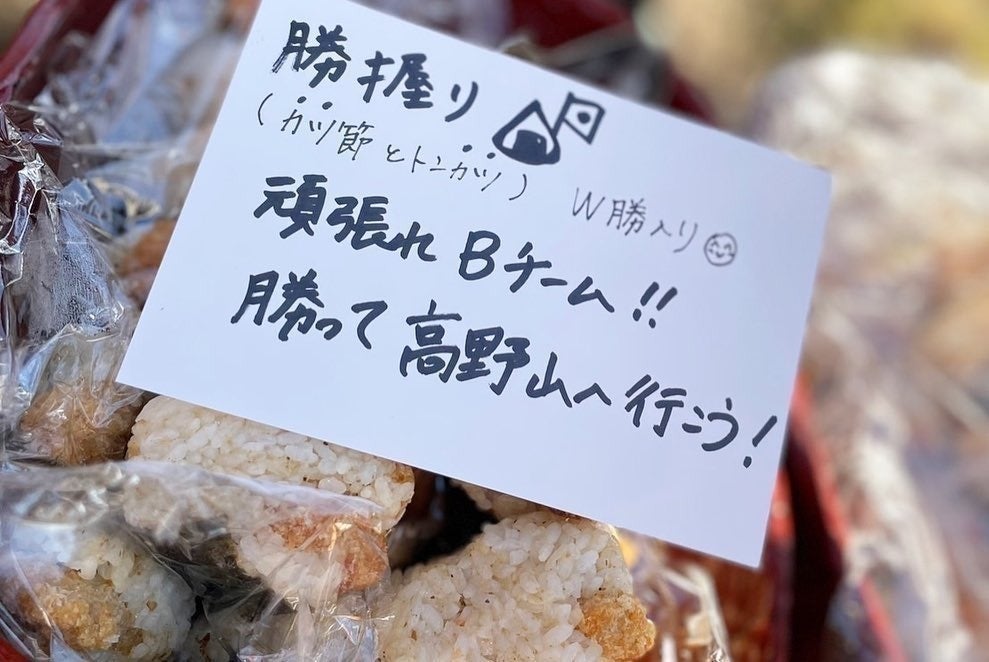 勝握り
(ガツ節とトンガツ) W勝入り
頑張れBチーム!!
勝って高野山へ行こう!